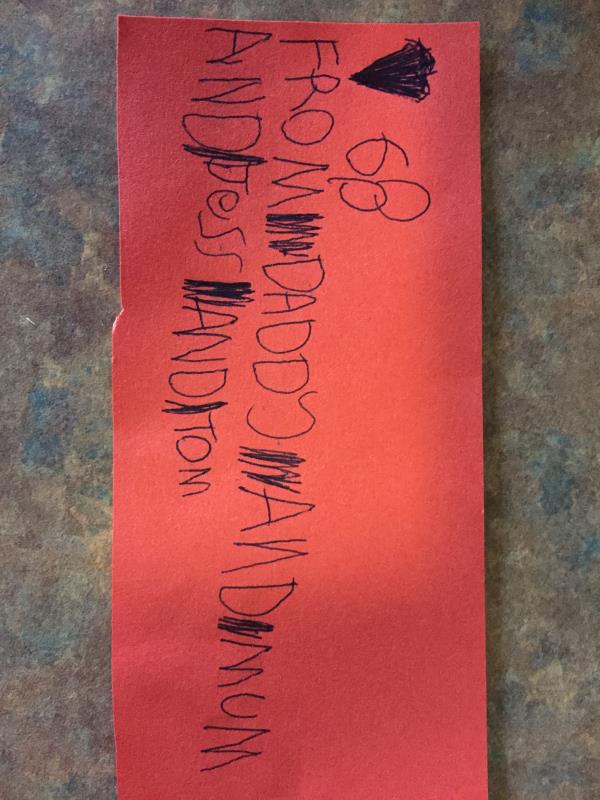 68
FROM DADDY AND MUM
AND JeSS AND TOM